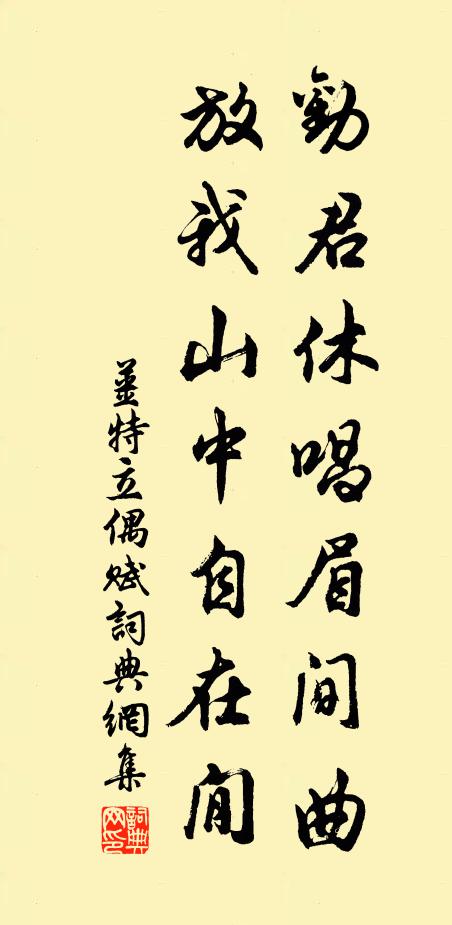 勸君休唱眉間曲
放我山中自在閒
姜特立偶賦詞典網集
詞典网印